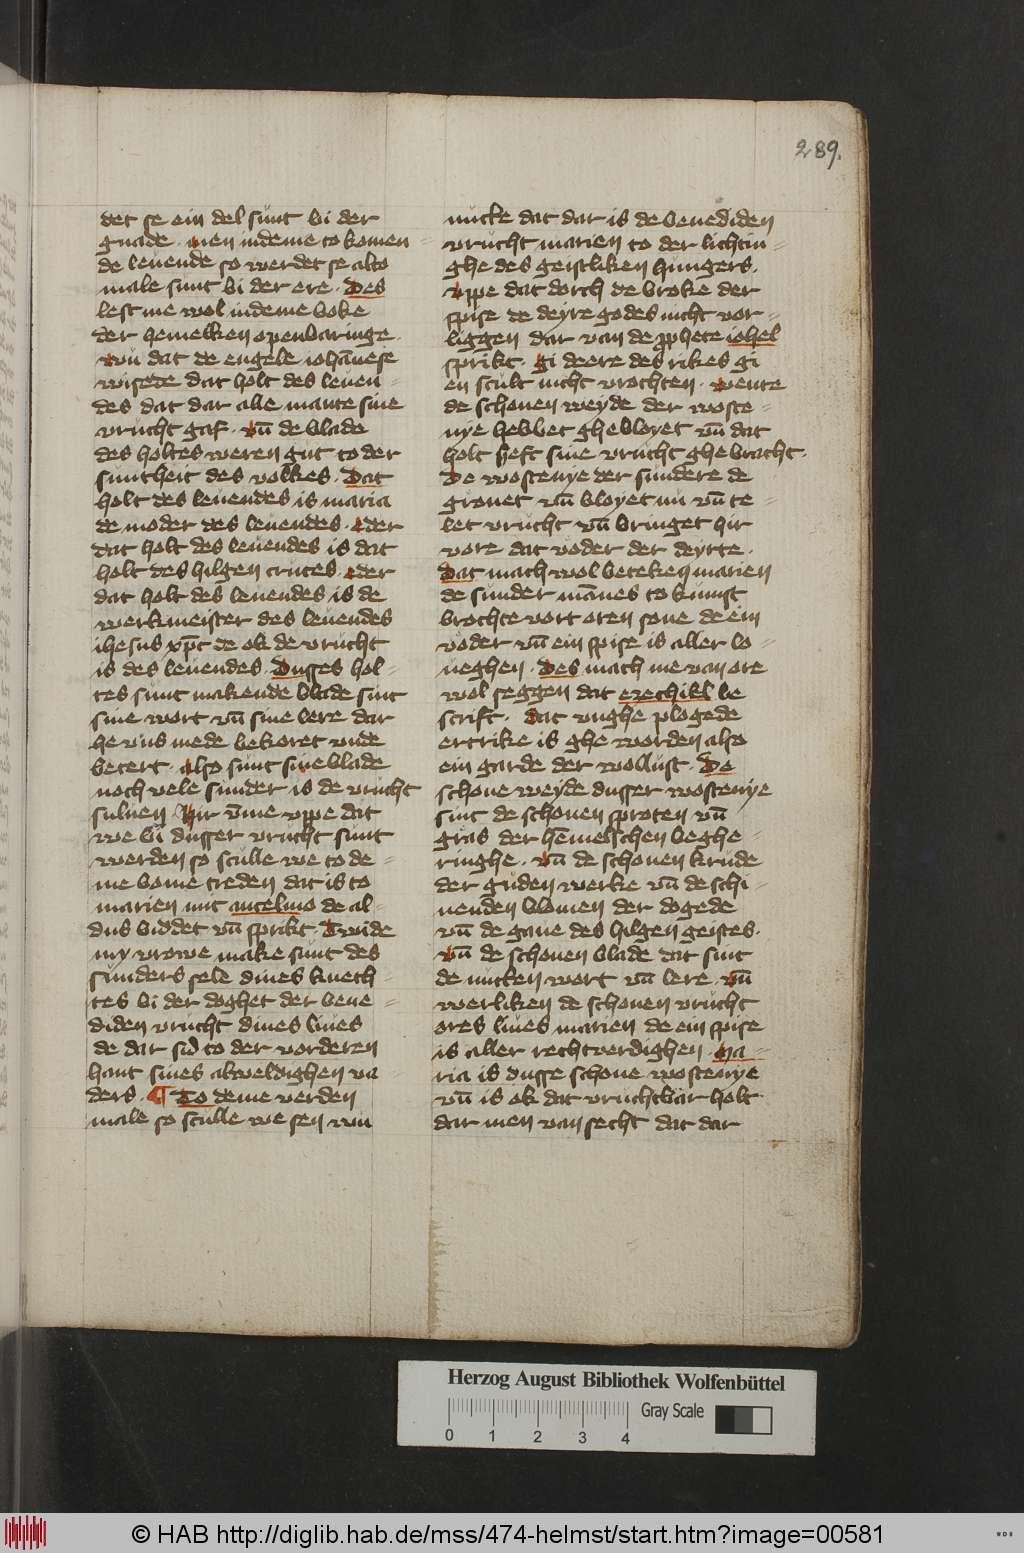 289.
det se ein del sunt bi der
gnade · men indeme to komen
de leuende so werdet se alto
male sunt bi der ere · Des
lest me wol indeme boke
der hemelken openbaringe ·
vn̄ dat de engele iohān̄ese
wisede dat holt des leuen
des dat dar alle mante sine
vrucht gaf · vn̄ de blade
des holtes weren gut to der
suntheit des volkes · Dat
holt des leuendes is maria
de moder des leuendes · eder
dat holt des leuendes is dat
holt des hilgen cruces · eder
dat holt des leuendes is de
werkmeister des leuendes
ihesus xp̄c de ok de vrucht
is des leuendes · Dusses hol-
tes sunt makende blade sint
sine wort vn̄ sine lere dar
he vns mede bekoret vnde
betert · also sunt sine blade
noch vele sunder is de vrucht
suluen Hir v̄me vppe dat
we bi dusser vrucht sunt
werden so sculle we to de-
me bome treden dat is to
marien mit ancelmo de al-
dus biddet vn̄ sprikt · Truide
my vrowe make sunt des
sunders sele dines knech-
tes bi der doghet der bene-
diden vrucht dines liues
de dar sid to der vorderen
hant sines alweldighen va-
ders · ¶ To deme verden
male so sculle we sen wu
nucke dat dar is de benediden
vrucht marien to der lichtin-
ghe des geistliken hungers ·
vppe dat dorch de broke der
spise de deyre godes nicht vor-
liggen dar van de p̄phete iohel
sprikt · gi deere des rikes gi
en scult nicht vrochten · wente
de schonen weyde der woste-
nye hebbet ghebloyet vn̄ dat
holt heft sine vrucht ghebracht ·
De wostenye der sundere de
gronet vn̄ bloyet nu vn̄ te-
let vrucht vn̄ bringet hir
vore dat voder der deyrte ·
Dat mach wol beteken marien
de sunder mānes to kumst
brochte vort oren sone de ein
voder vn̄ ein spise is aller lo-
ueghen · Des mach me van ore
wol seggen dat ezechiel be
scrift · Dat vnghe plogede
ertrike is ghe worden also
ein garde der wollust · De
schone weyde dusser wostenye
sint de schonen sproten vn̄
gras der hēmelschen beghe-
ringhe · vn̄ de schonen krude
der guden werke vn̄ de schi-
nenden blomen der dogede
vn̄ de gaue des hilgen geistes ·
vn̄ de schonen blade dat sint
de nutken wort vn̄ lere · vn̄
werliken de schonen vrucht
ores liues marien de ein spise
is aller rechtverdighen · Ma-
ria is dusse schone wostenye
vn̄ is ok dat vruchtbar holt ·
dar men van secht dat dar
Herzog August Bibliothek Wolfenbüttel
Gray Scale
0 1 2 3 4
© HAB http://diglib.hab.de/mss/474-helmst/start.htm?image=00581